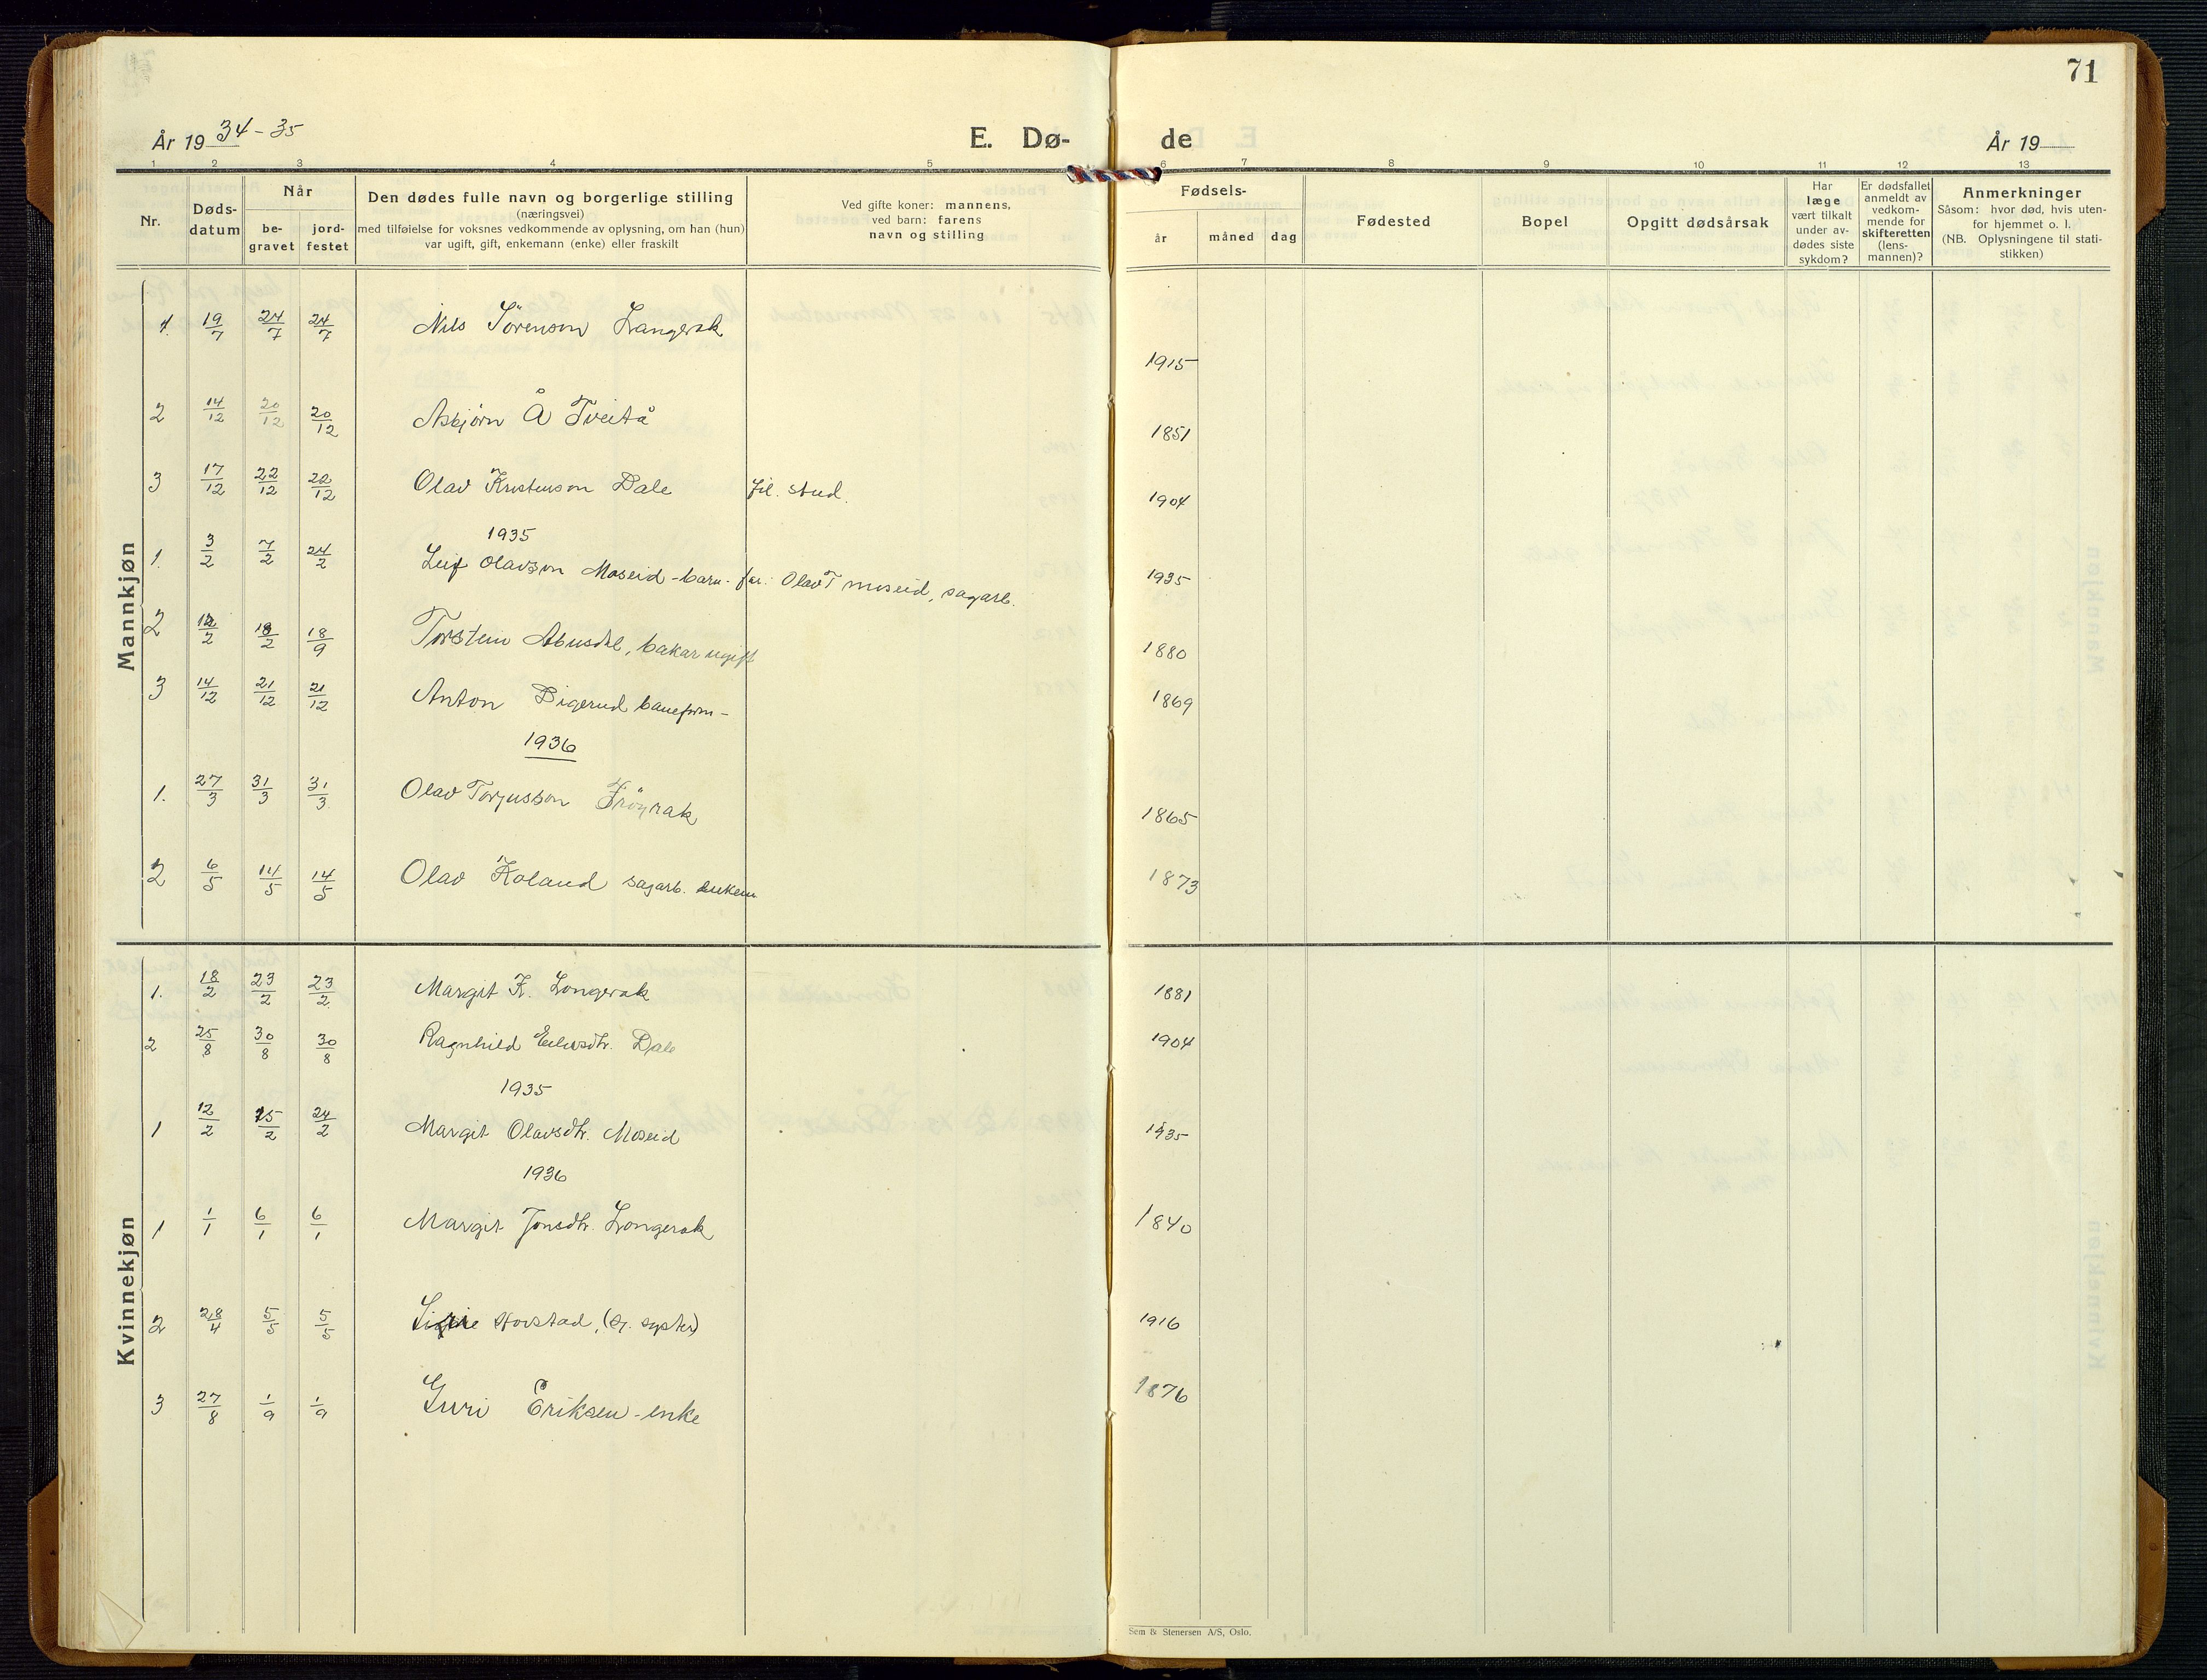 71
År 19 34-35
E. Dø-
de
År 19
1 2 3 4 5 6 7 8 9 10 11 12 13
Nr.
Døds-
datum
Når
be-
gravet
jord-
festet
Den dødes fulle navn og borgerlige stilling
(næringsvei)
med tilføielse for voksnes vedkommende av oplysning, om han (hun)
var ugift, gift, enkemann (enke) eller fraskilt
Ved gifte koner: mannens,
ved barn: farens
navn og stilling
Fødsels-
år måned dag
Fødested
Bopel
Opgitt dødsårsak
Har
læge
vært tilkalt
under av-
dødes siste
sykdom?
Er dødsfallet
anmeldt av
vedkom-
mende for
skifteretten
(lens-
mannen)?
Anmerkninger
Såsom: hvor død, hvis uten-
for hjemmet o. l.
(NB. Oplysningene til stati-
stikken)
Mannkjøn
1. 19/7 24/7 24/7 Nils Sörenson Langerak 1915
2 14/12 20/12 20/12 Asbjörn Å Tveitå 1851
3 17/12 22/12 22/12 Olav Kristenson Dale fil. stud. 1904
1935
1. 3/2 7/2 24/2 Leif Olavson Moseid - barn - far: Olav T moseid, sagarb. 1935
2 12/2 18/2 18/9 Torstein Abusdal, bakar ugift 1880
3 14/12 21/12 21/12 Anton Digerud baneform- 1869
1936
1. 27/3 31/3 31/3 Olav Torjusson Fröyrak 1865
2 6/5 14/5 14/5 Olav Roland sagarb. enkem 1873
Kvinnekjøn
1. 18/2 23/2 23/2 Margit K. Longerak 1881
2 25/8 30/8 30/8 Ragnhild Dale 1904
1935
1 12/2 15/2 24/2 Margit Olavsdtr. Moseid 1935
1936
1 1/1 6/1 6/1 Margit Jonsdtr. Longerak 1840
2 28/4 5/5 5/5 Horstad, (Sj. syster) 1916
3 27/8 1/9 1/9 Guri Eriksen - enke 1876
Sem & Stenersen A/S, Oslo.